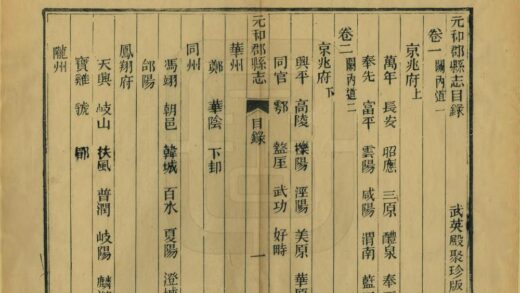 元和郡縣志目錄 武英殿聚珍版
卷一 關內道一
京兆府上
萬年 長安 昭應 三原 醴泉 奉
奉先 富平 雲陽 咸陽 渭南 藍
卷二 關內道二
京兆府下
興平 高陵 櫟陽 涇陽 美原 華原
同官 鄠 盩厔 武功 好畤
元和郡縣志 目錄 一
華州
鄭 華陰 下邽
同州
馮翊 朝邑 韓城 白水 夏陽 澄城
郃陽
鳳翔府
天興 岐山 扶風 普潤 岐陽 麟
寶雞 虢 郿
隴州